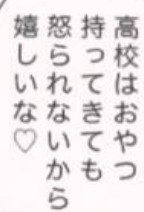 高校はおやつ
持ってきても
怒られないから
嬉しいな♡